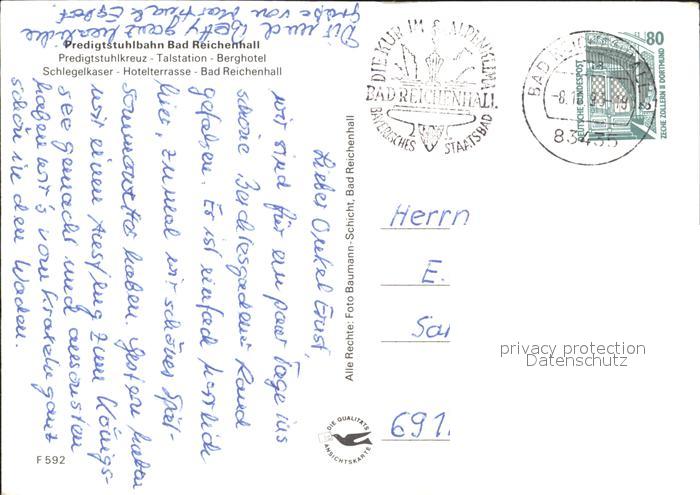 Predigtstuhlbahn Bad Reichenhall
Predigtstuhlkreuz - Talstation - Berghotel
Schlegelkaser - Hotelterrasse - Bad Reichenhall
Lieber Onkel Ernst,
wir sind für ein paar Tage ins
schöne Berchtesgadener Land
gefahren. Es ist einfach herrlich
hier, zumal wir schönes Spät-
sommerwetter haben. Gestern haben
wir einen Ausflug zum Königs-
see gemacht und ansonsten
haben wir's vom Kraxeln ganz
schön in den Waden.
Dir und Betty ganz herzliche
Grüße von
F 592
Alle Rechte: Foto Baumann-Schicht, Bad Reichenhall
DIE QUALITÄTS
ANSICHTSKARTE
DIE KUR IM ALPENKLIMA
BAD REICHENHALL
BAYERISCHES STAATSBAD
BAD REICHENHALL
83435
80
DEUTSCHE BUNDESPOST
ZECHE ZOLLERN II DORTMUND
Herrn
E.
691
privacy protection
Datenschutz